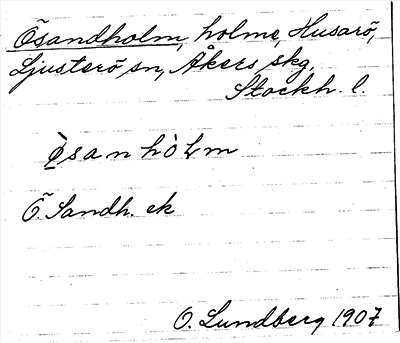 Ösandholm, holme, Husarö,
Ljusterö sn, Åkers skg,
Stockh. l.
ø̀sanhòɫm
Ö. Sandh. ek
O. Lundberg 1907